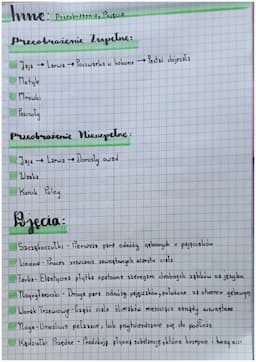 Inne: Przeobrażenia, Pojęcia
Przeobrażenie Zupełne:
Jaja → Larwa → Poczwarka w kokonie → Postać dojrzała
Motyle
Mrówki
Pszczoły
Przeobrażenie Niezupełne:
Jaja → Larwa → Dorosły owad
Ważka
Konik Polny
Pojęcia:
Szczękoczułki - Pierwsza para odnóży gębowych u pajęczaków
Linienie - Proces zrzucania zewnętrznych warstw ciała
Tarka - Elastyczna płytka opatrzona szeregiem drobnych ząbków na języku
Nogogłaszczki - Druga para odnóży pajęczaków, położona za otworem gębowym
Worek trzewiowy - część ciała ślimaków mieszcząca narządy wewnętrzne
Noga - Umożliwia pełzanie, lub przytwierdzanie się do podłoża
Kądziołki Przędne - Produkują płynną substancję, która krzepnie i tworzy nici